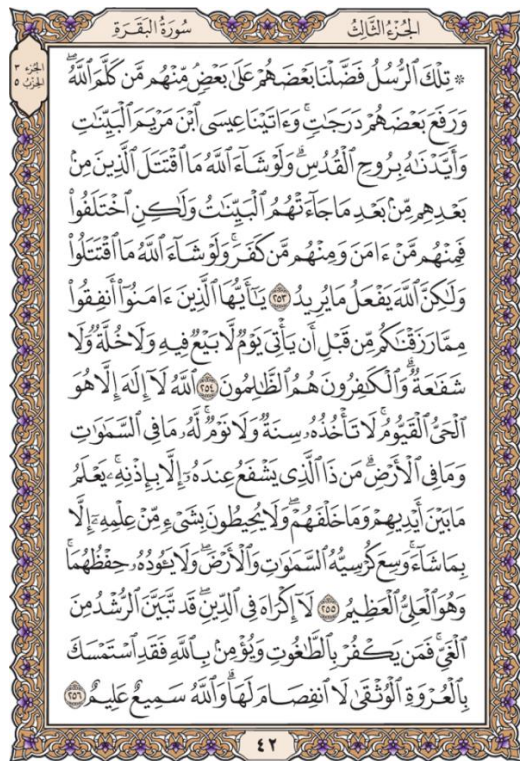 سُورَةُ البَقَرَةِ
الجُزْءُ الثَّالِثُ
الجزء ٣
الحزب ٥
۞ تِلْكَ ٱلرُّسُلُ فَضَّلْنَا بَعْضَهُمْ عَلَىٰ بَعْضٖۘ مِّنْهُم مَّن كَلَّمَ ٱللَّهُۖ
وَرَفَعَ بَعْضَهُمْ دَرَجَٰتٖۚ وَءَاتَيْنَا عِيسَى ٱبْنَ مَرْيَمَ ٱلْبَيِّنَٰتِ
وَأَيَّدْنَٰهُ بِرُوحِ ٱلْقُدُسِۗ وَلَوْ شَآءَ ٱللَّهُ مَا ٱقْتَتَلَ ٱلَّذِينَ مِنۢ
بَعْدِهِم مِّنۢ بَعْدِ مَا جَآءَتْهُمُ ٱلْبَيِّنَٰتُ وَلَٰكِنِ ٱخْتَلَفُوا۟
فَمِنْهُم مَّنْ ءَامَنَ وَمِنْهُم مَّن كَفَرَۚ وَلَوْ شَآءَ ٱللَّهُ مَا ٱقْتَتَلُوا۟
وَلَٰكِنَّ ٱللَّهَ يَفْعَلُ مَا يُرِيدُ ٢٥٣ يَٰٓأَيُّهَا ٱلَّذِينَ ءَامَنُوٓا۟ أَنفِقُوا۟
مِمَّا رَزَقْنَٰكُم مِّن قَبْلِ أَن يَأْتِىَ يَوْمٌ لَّا بَيْعٌ فِيهِ وَلَا خُلَّةٌ وَلَا
شَفَٰعَةٌۗ وَٱلْكَٰفِرُونَ هُمُ ٱلظَّٰلِمُونَ ٢٥٤ ٱللَّهُ لَآ إِلَٰهَ إِلَّا هُوَ
ٱلْحَىُّ ٱلْقَيُّومُۚ لَا تَأْخُذُهُۥ سِنَةٌ وَلَا نَوْمٌۚ لَّهُۥ مَا فِى ٱلسَّمَٰوَٰتِ
وَمَا فِى ٱلْأَرْضِۗ مَن ذَا ٱلَّذِى يَشْفَعُ عِندَهُۥٓ إِلَّا بِإِذْنِهِۦۚ يَعْلَمُ
مَا بَيْنَ أَيْدِيهِمْ وَمَا خَلْفَهُمْۖ وَلَا يُحِيطُونَ بِشَىْءٍ مِّنْ عِلْمِهِۦٓ إِلَّا
بِمَا شَآءَۚ وَسِعَ كُرْسِيُّهُ ٱلسَّمَٰوَٰتِ وَٱلْأَرْضَۖ وَلَا يَـُٔودُهُۥ حِفْظُهُمَاۚ
وَهُوَ ٱلْعَلِىُّ ٱلْعَظِيمُ ٢٥٥ لَآ إِكْرَاهَ فِى ٱلدِّينِۖ قَد تَّبَيَّنَ ٱلرُّشْدُ مِنَ
ٱلْغَىِّۚ فَمَن يَكْفُرْ بِٱلطَّٰغُوتِ وَيُؤْمِنۢ بِٱللَّهِ فَقَدِ ٱسْتَمْسَكَ
بِٱلْعُرْوَةِ ٱلْوُثْقَىٰ لَا ٱنفِصَامَ لَهَاۗ وَٱللَّهُ سَمِيعٌ عَلِيمٌ ٢٥٦
٤٢